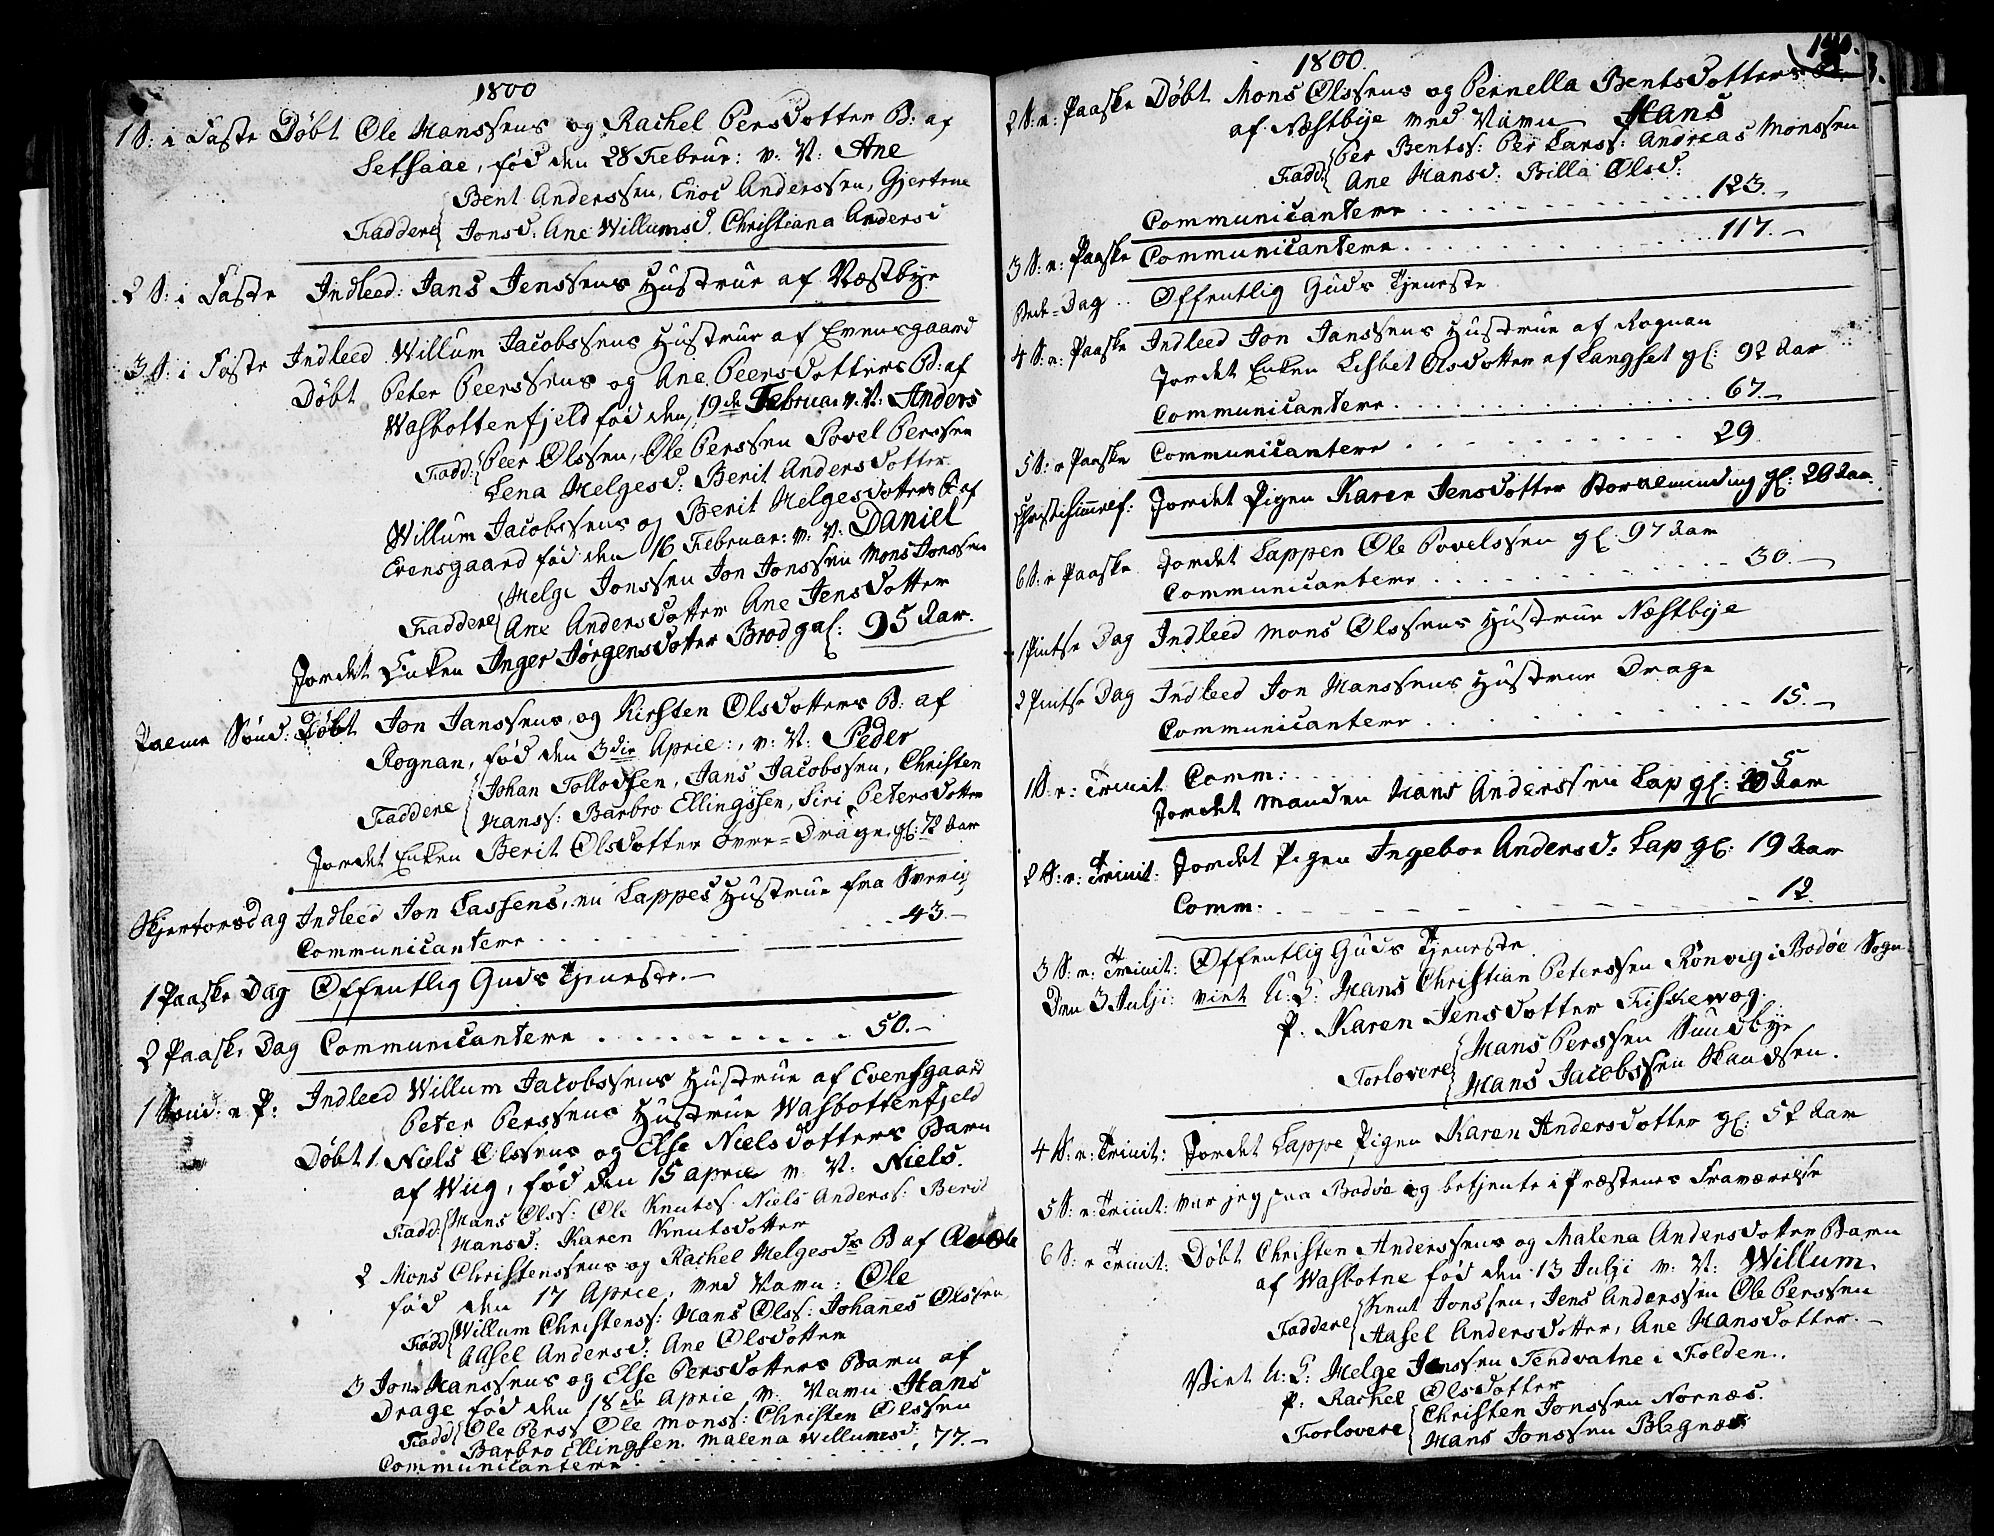 1800
1 S: i Faste Døbt Ole Hanssens og Rachel Persdotter B: af
Setsaae, fød den 28 Februr: v. N: Ane
Bent Anderssen, Enoc Anderssen, Gjertrue
Faddere Jonsd: Ane Willumsd. Christiana Andersd
2 S: i Faste Indleed: Jans Jenssens Hustrue af Næstbye
3 S: i Faste Indleed Willum Jacobssens Hustrue af Evensgaard
Døbt Peter Peerssens og Ane Peersdotters B: af
Wasbottenfjeld fød den 19de Februar v. N: Anders
Fadd: Peer Olssen, Ole Perssen Povel Perssen
Lena Helgesd: Berit Andersdotter
Willum Jacobssens og Berit Helgesdotters B: af
Evensgaard fød den 16 Februar: v. N: Daniel
Helge Jonssen Jon Jonssen Mons Jonssen
Faddere Ane Andersdotter Ane Jensdotter
Jordet Enken Inger Jørgensdotter Brod gal: 95 Aar.
Palme Sønd: Døbt Jon Janssens og Kirsten Olsdotters B: af
Rognan, fød den 3die Aprie:, v: N: Peder
Johan Tollodsen, Jans Jacobssen, Christen
Faddere Hanss: Barbro Ellingssen, Siri Petersdotter
Jordet Enken Berit Olsdotter Øvre=Drage gl: 72 Aar
Skjertorsdag Indleed Jon Lassens, en Lappes Hustrue fra Sverig
Communicantere . . . . 43.—
1 Paaske Dag Offentlig Guds Tjeneste.—
2 Paaske Dag Communicantere . . . . . . . . 50.—
1 Sønd: e P: Indleed Willum Jacobssens Hustrue af Evensgaard
Peter Perssens Hustrue Wasbottenfjeld
Døbt 1 Niels Olssens og Else Nielsdotters Barn
af Wiig, fød den 15 aprie v. N: Niels.
Fadd: Hans Olss: Ole Knutss Niels Anderss: Berit
Hansd: Karen Knutsdotter
2 Mons Christenssens og Rachel Helgesds B af
fød den 17 Aprie, med Navn: Ole
Fadd Willum Christenss: Hans Olss: Johannes Olssen
Aasel Andersd: Ane Olsdotter
3 Jon Hanssens og Else Persdotters Barn af
Drage fød den 18de Aprie v. Navn Hans
Fadd Ole Perss Ole Monss: Christen Olssen
Barbro Ellingsen. Malena Willumsd.
Communicantere . . . . . . . . 77.—
1800.
2 S: e: Paaske Døbt Mons Olssens og Pernella Bentsdotters B:
af Næstbye med Navn Hans
Fadd: Per Bentss: Per Larss: Andreas Monssen
Ane Hansd: Billa Olsd:
Communicantere . . . . . . . . 123.—
3 S: e: Paaske Communicantere . . . . . . . . 117.—
Bede=Dag .. Offentlig Guds Tjeneste
4 S: e: Paaske Indleed Jon Janssens Hustrue af Rognan
Jordet Enken Lisbet Olsdotter af Langset gl: 92 Aar
Communicantere . . . . . . . . 67.—
5 S: e Paaske Communicantere . . . . . . . . 29.
Christi Himmelf: Jordet Pigen Karen Jensdotter Storaeminding gl: 26 Aar.
6 S: e Paaske Jordet Lappen Ole Povelssen gl. 97 Aar
Communicantere . . . . . . . . 30.—
1 Pintse Dag Indleed Mons Olssens Hustrue Næstbye
2 Pintse Dag Indleed Jon Hanssens Hustrue Drage
Communicantere . . . . . . . . 15.—
1 S: e: Trinit Comm: . . . . . . . . 5
Jordet Manden Hans Anderssen Lap gl: Aar
2 S: e: Trinit: Jordet Pigen Ingebor Andersd: Lap gl: 19 Aar
Comm. . . . . . . . . 12.
3 S: e: Trinit: Offentlig Guds Tjeneste.
Den 3 Julji: viet U: K: Hans Christian Peterssen Rønvig i Bodøe Sogn
P. Karen Jensdotter Fiskevog.
Hans Perssen Sundbye
Forlovere Hans Jacobssen Skandsen.
4 S: e: Trinit: Jordet Lappe Pigen Karen Andersdotter gl: 52 Aar
5 S: e: Trinit: var jeg paa Bodøe og betjente i Præstens Fraværelse
6 S: e Trinit: Døbt Christen Anderssens og Malena Andersdotter Barn
af Wasbotne fød den 13 Julji v: N: Willum.
Knut Jonssen, Jens Anderssen Ole Perssen
Faddere Aasel Andersdotter, Ane Hansdotter.—
Viet U: K: Helge Jonssen Tendvatne i Folden.
P: Rachel Olsdotter
Christen Jonssen Nornæs.
Forlovere Hans Jonssen Blegnæs